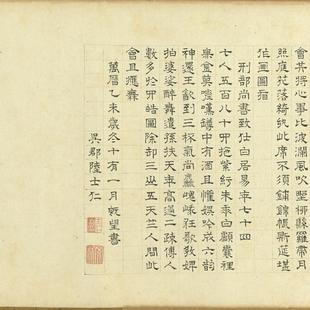 會共將心事比波瀾風吹野柳縣羅帶月
照庭花落綺紈此席不須鋪錦帳斯筵堪
作畫圖看
刑部尚書致仕白居易年七十四
七人五百八十四拖紫紆朱垂白鬚囊裡
無金莫嗟嘆罇中有酒且懽娛吟成六韻
神還王飲到三杯氣尚麤嵬峨狂歌教婢
拍婆娑醉舞遣孫扶天年高過二疎傅人
數多於四皓圖除却三山五天竺人間此
會且應無
萬曆乙未歲冬十有一月既望書
吳郡陸士仁